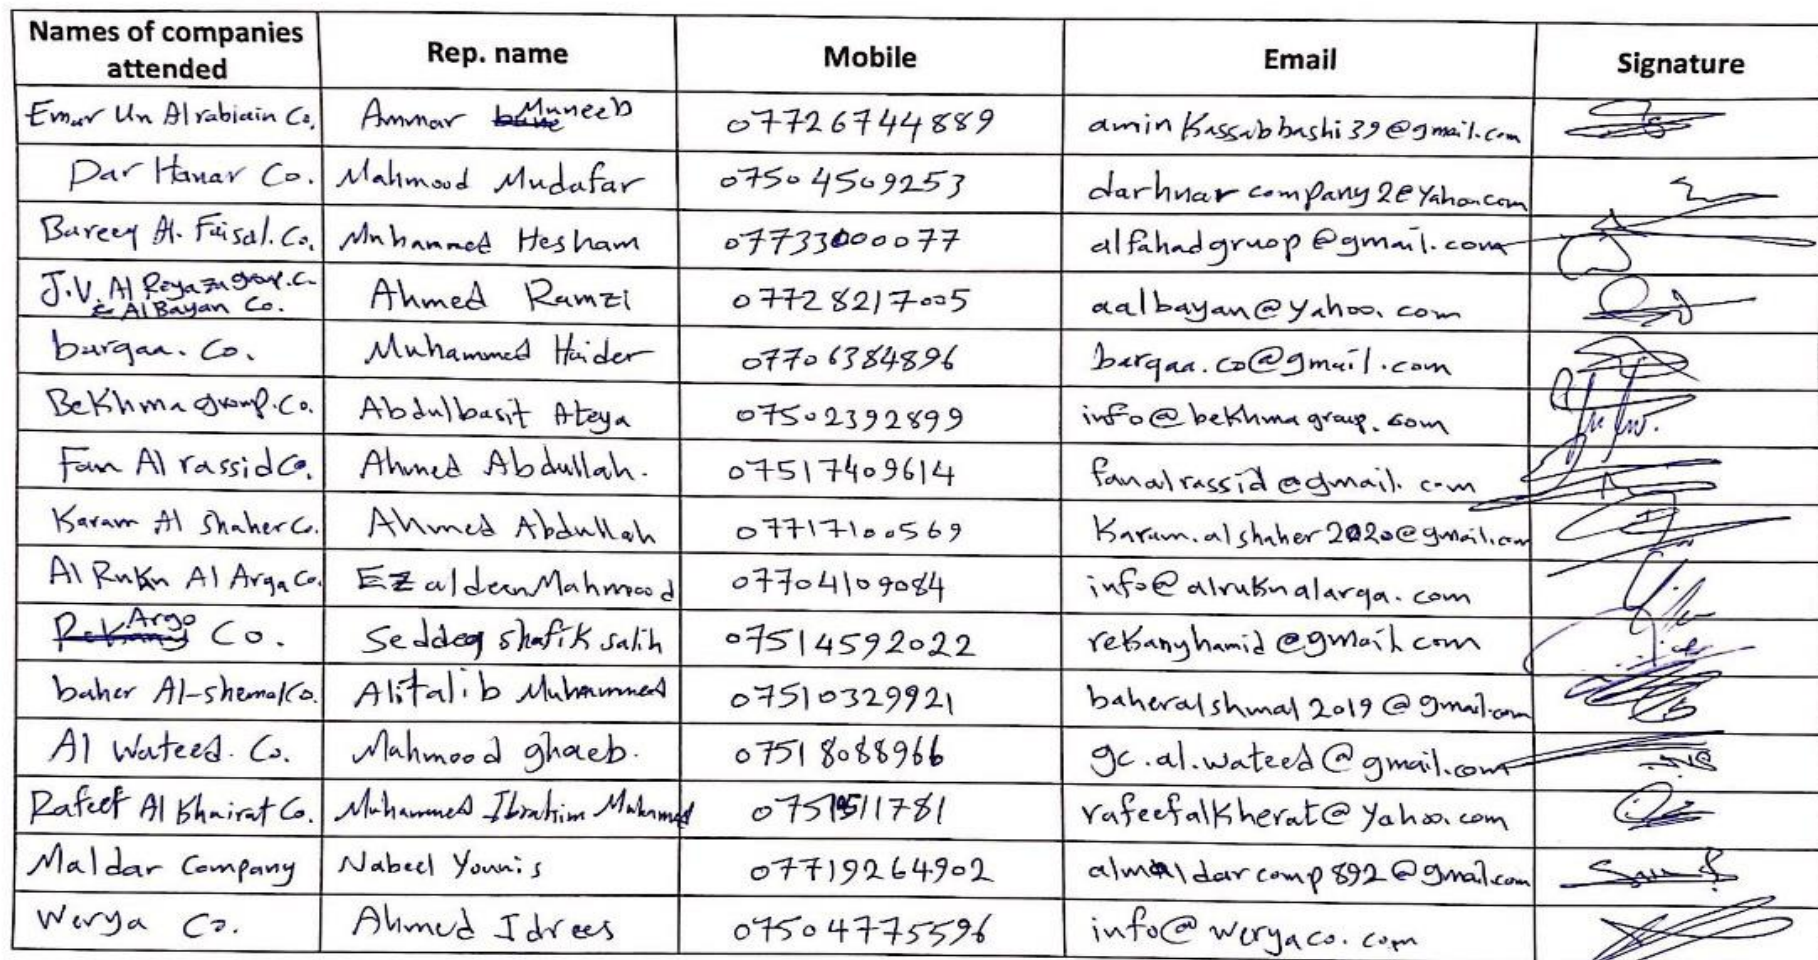 Names of companies attended | Rep. name | Mobile | Email | Signature
Emar Un Alrabiain Co. | Ammar Muneeb | 07726744889 | aminkassabbashi39@gmail.com
Dar Hanar Co. | Mahmood Mudafar | 07504509253 | darhnarcompany2@yahoo.com
Bareeq Al-Faisal.Co. | Muhammed Hesham | 07733000077 | alfahadgruop@gmail.com
J.V. Al Reyaza group.Co & Al Bayan Co. | Ahmed Ramzi | 07728217005 | aalbayan@yahoo.com
barqaa.Co. | Muhammed Haider | 07706384896 | barqaa.co@gmail.com
Bekhma group.Co. | Abdulbasit Ateya | 07502392899 | info@bekhmagroup.com
Fan Al rassid Co. | Ahmed Abdullah. | 07517409614 | fanalrassid@gmail.com
Karam Al Shaher Co. | Ahmed Abdullah | 07717100569 | Karam.alshaher2020@gmail.com
Al Rukn Al Arqa Co. | Ez aldeen Mahmood | 07704109084 | info@alruknalarqa.com
Argo Co. | Seddeq shafik salih | 07514592022 | rekanyhamid@gmail.com
baher Al-shemal Co. | Ali talib Muhammed | 07510329921 | baheralshmal2019@gmail.com
Al Wateed. Co. | Mahmood ghaeb. | 07518088966 | gc.al.wateed@gmail.com
Rafeef Al Khairat Co. | Muhammed Ibrahim Muhammed | rafeefalkherat@yahoo.com
Maldar Company | Nabeel Younis | 07719264902 | almaldarcomp892@gmail.com
Werya Co. | Ahmed Idrees | 07504775596 | info@weryaco.com